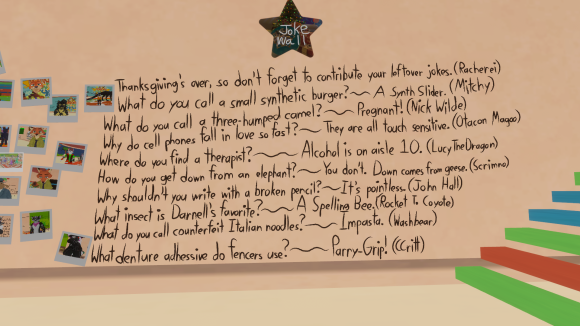 Joke
Wall
Thanksgiving's over, so don't forget to contribute your leftover jokes. (Racherei)
What do you call a small synthetic burger?~ A Synth Slider. (Mitchy)
What do you call a three-humped camel?~ Pregnant! (Nick Wilde)
Why do cell phones fall in love so fast?~ They are all touch sensitive. (Otacon Magoo)
Where do you find a therapist?~ Alcohol is on aisle 10. (LucyTheDragon)
How do you get down from an elephant?~ You don't. Down comes from geese. (Scrimno)
Why shouldn't you write with a broken pencil?~ It's pointless. (John Hall)
What insect is Darnell's favorite?~ A Spelling Bee. (Rocket To Coyote)
What do you call counterfeit Italian noodles?~ Impasta. (Washbear)
What denture adhesive do fencers use?~ Parry-Grip! (CCritt)